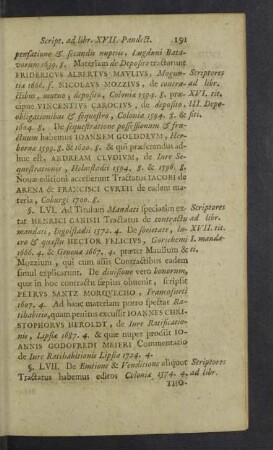 Script. ad libr. XVII. Pandect. 191
pensatione & secundis nuptiis, Lugduni Bata-
vorum 1639. 8. Materiam de Deposito tractarunt
FRIDERICUS ALBERTUS MAULIUS, Mogun- Scriptores
tiæ 1606. f. NICOLAUS MOZZIUS, de contra- ad libr.
ctibus, mutuo, deposito, Coloniæ 1594. 8. præ- XVI. tit.
cipue VINCENTIUS CAROCIUS, de deposito, III. Depo-
obligationibus & sequestro, Coloniæ 1594. 8. & siti.
1604. 8. De sequestratione possessionum & fru-
ctuum habemus IOANNEM GOEDDEUM, Her-
bornæ 1595. 8. & 1620. 8. & qui præferendus ad-
huc est, ANDREAM CLUDIUM, de Iure Se-
questrationis, Helmstadii 1594. 8. & 1596. 8.
Novæ editioni accesserunt Tractatus IACOBI de
ARENA & FRANCISCI CURTII de eadem ma-
teria, Coburgi 1700. 8.
§. LVI. Ad Titulum Mandati speciatim ex- Scriptores
tat HENRICI CANISII Tractatus de contractu ad libr.
mandati, Ingolstadii 1572. 4. De societate, lu- XVII. tit.
cro & quæstu HECTOR FELICIUS, Gorichemi I. manda-
1666. 4. & Genevæ 1667. 4. præter Maulium & ti.
Mozzium, qui cum aliis Contractibus eadem
simul explicarunt. De divisione vero bonorum,
quæ in hoc contractu sæpius obtenit, scripsit
PETRUS SANTZ MORQUECHO, Francofurti
1607. 4. Ad hanc materiam porro spectat Ra-
tihabitio, quam penitus excussit IOANNES CHRI-
STOPHORUS HEROLDT, de Iure Ratificatio-
nis, Lipsiæ 1687. 4. & quæ nuper prodiit IO-
ANNIS GODOFREDI MEIERI Commentatio
de Iure Ratihabitionis Lipsiæ 1724. 4.
§. LVII. De Emtione & Venditione aliquot Scriptores
Tractatus habemus editos Coloniæ 1574. 4. ad libr.
THO-